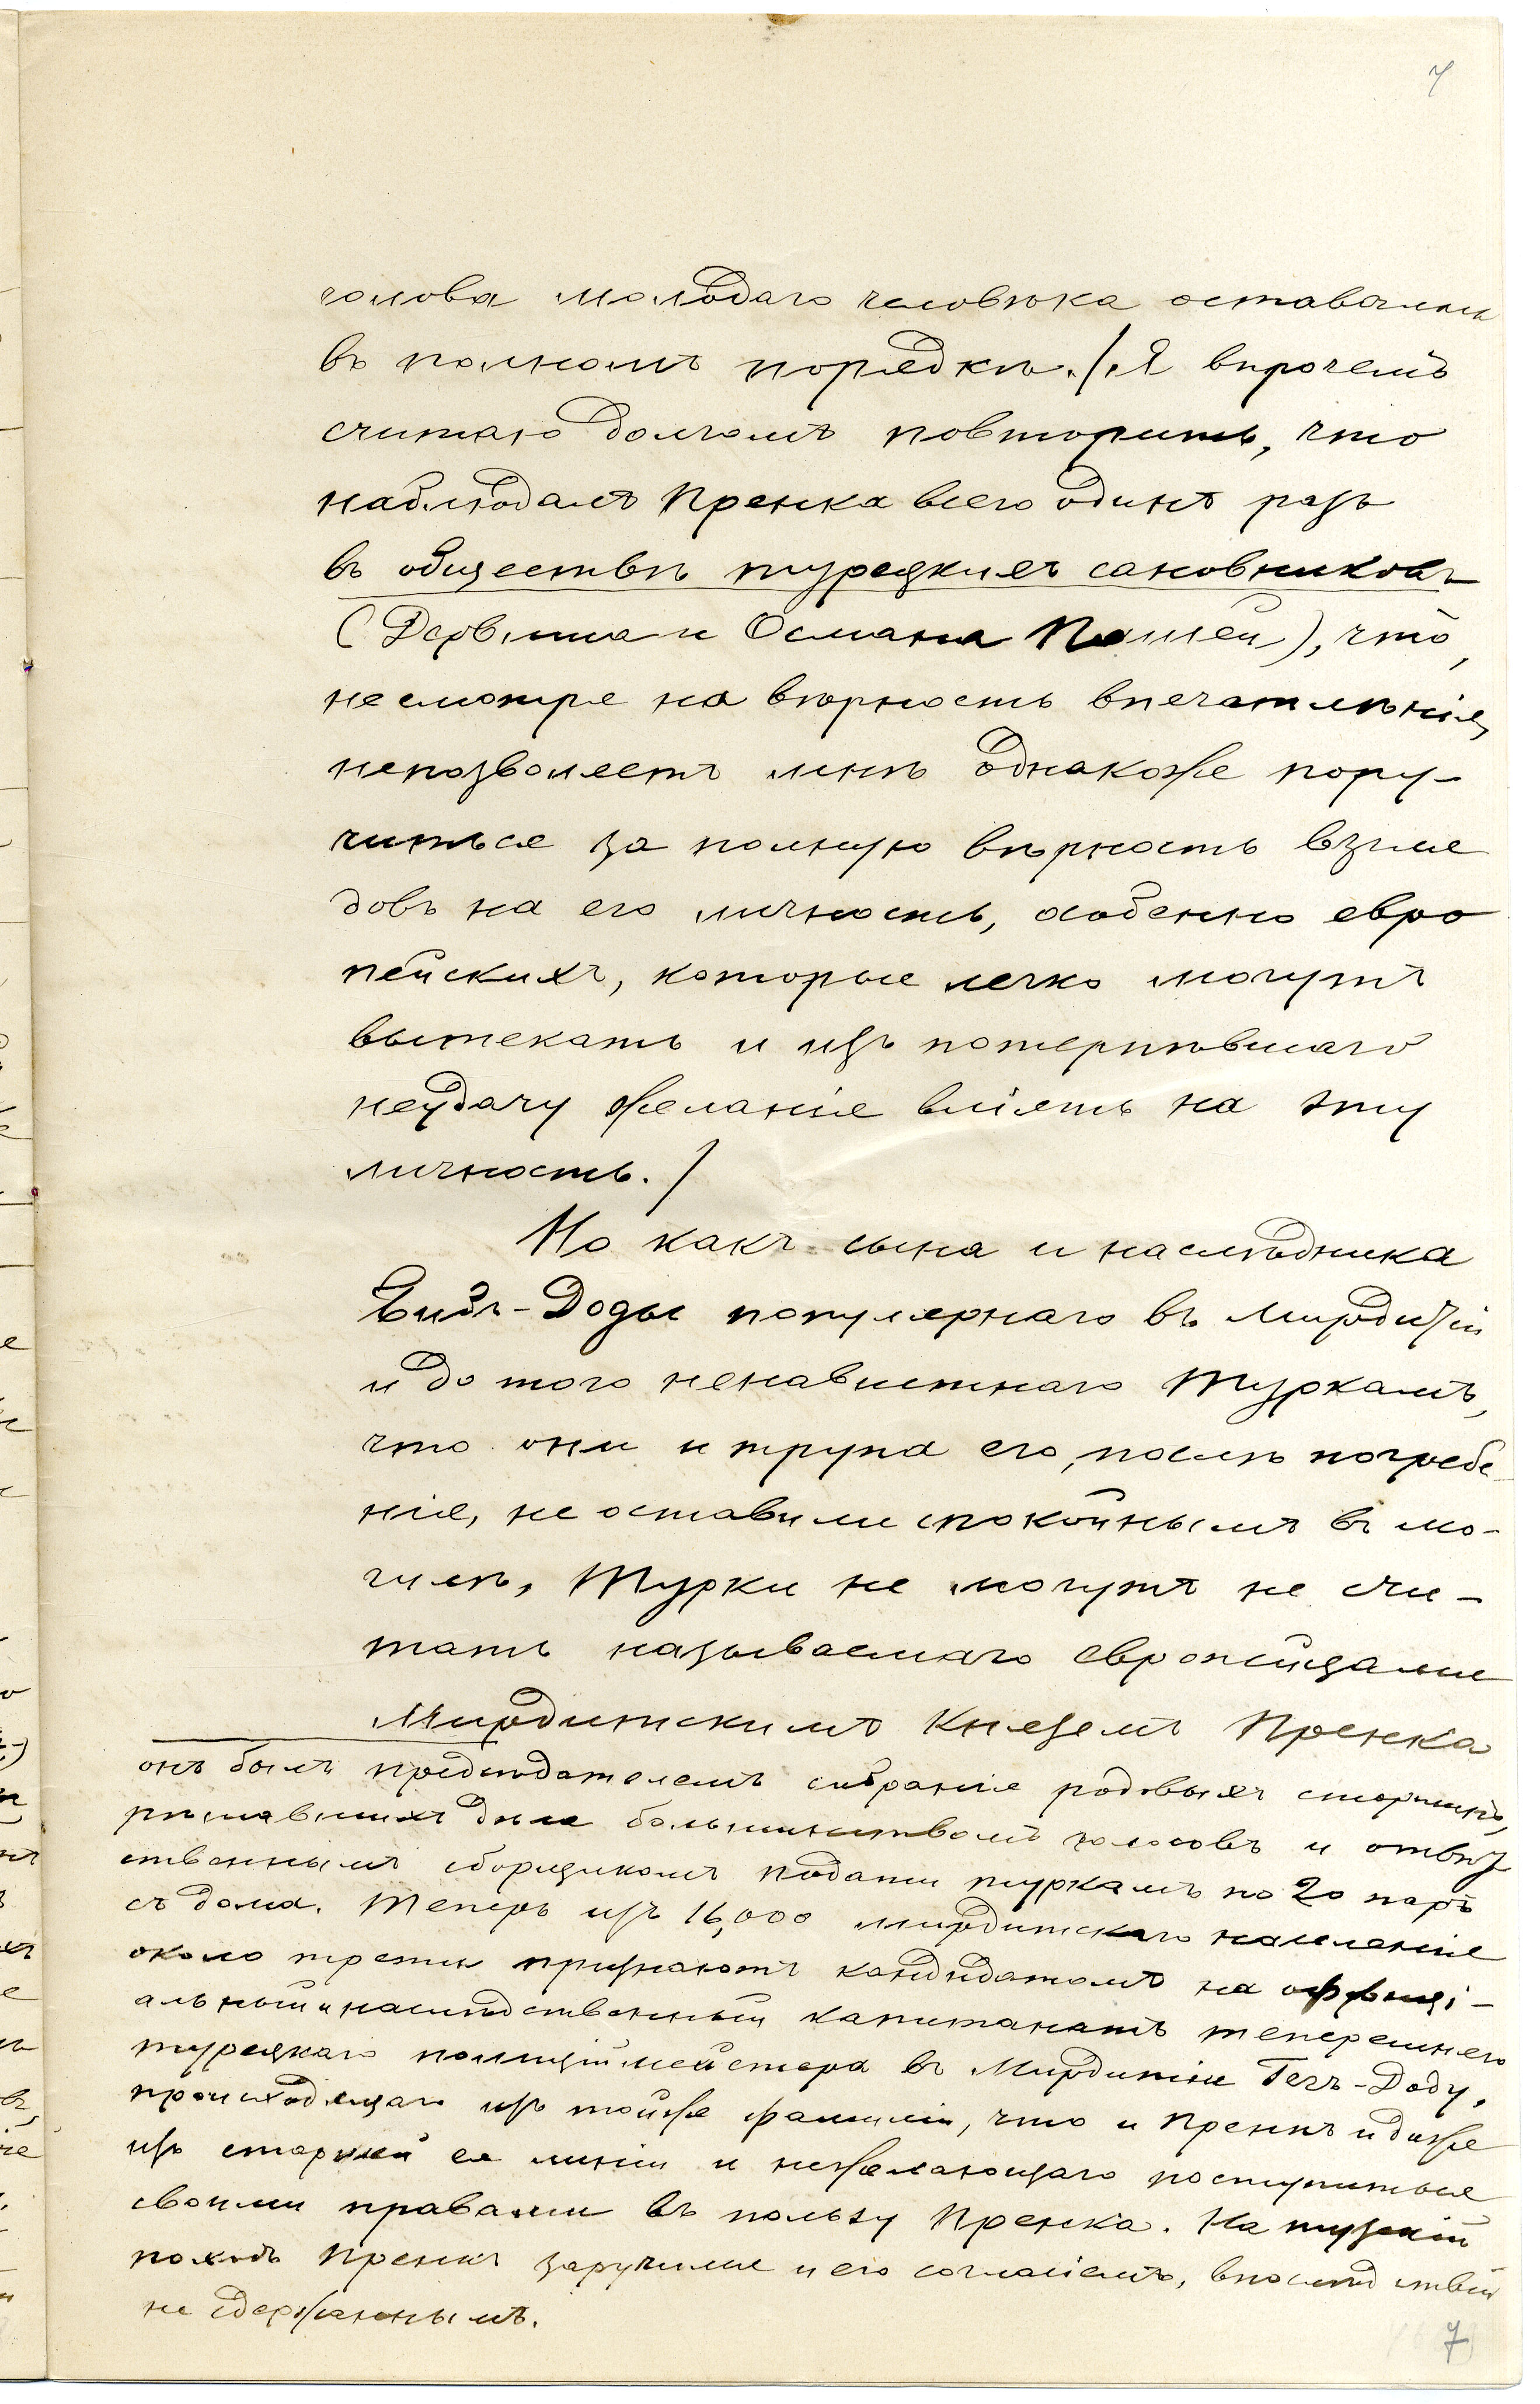 7
голова молодаго человѣка оставалась
въ полномъ порядкѣ./.Я впрочемъ
считаю долгомъ повторить, что
наблюдалъ Пренка всего одинъ разъ
въ обществѣ турецкихъ сановниковъ
(Дервиша и Османа Пашей), что,
несмотря на вѣрность впечатлѣнія,
непозволяетъ мнѣ однакоже пору-
читься за полную вѣрность взгля
довъ на его личность, особенно евро
пейскихъ, которые легко могутъ
вытекать и изъ потерпѣвшаго
неудачу желанія вліять на эту
личность./
Но какъ сына и наслѣдника
Бибъ-Доды популярнаго въ Мирдиціи
и до того ненавистнаго Туркамъ,
что они и трупа его, послѣ погребе
нія, не оставили спокойнымъ въ мо-
гилѣ, Турки не могутъ не счи-
тать называемаго европейцами
Мирдитскимъ Княземъ Пренка
онъ былъ предсѣдателемъ собранія родовыхъ старшинъ,
рѣшавшихъ дѣла большинствомъ голосовъ и отвѣт
ственнымъ сборщикомъ подати туркамъ по 20 паръ
съ дома. Теперь изъ 16,000 мирдитскаго населенія
около трети признаютъ кандидатомъ на оффиці-
альный и наслѣдственный капитанатъ теперешняго
турецкаго полиціймейстера въ Мирдитіи Гегъ-Доду,
происходящаго изъ тойже фамиліи, что и Пренкъ и даже
изъ старшей ея линіи и нежелающаго поступиться
своими правами въ пользу Пренка. На
походъ Пренкъ заручился и его согласіемъ, впослѣдствіи
не сдержаннымъ.
7